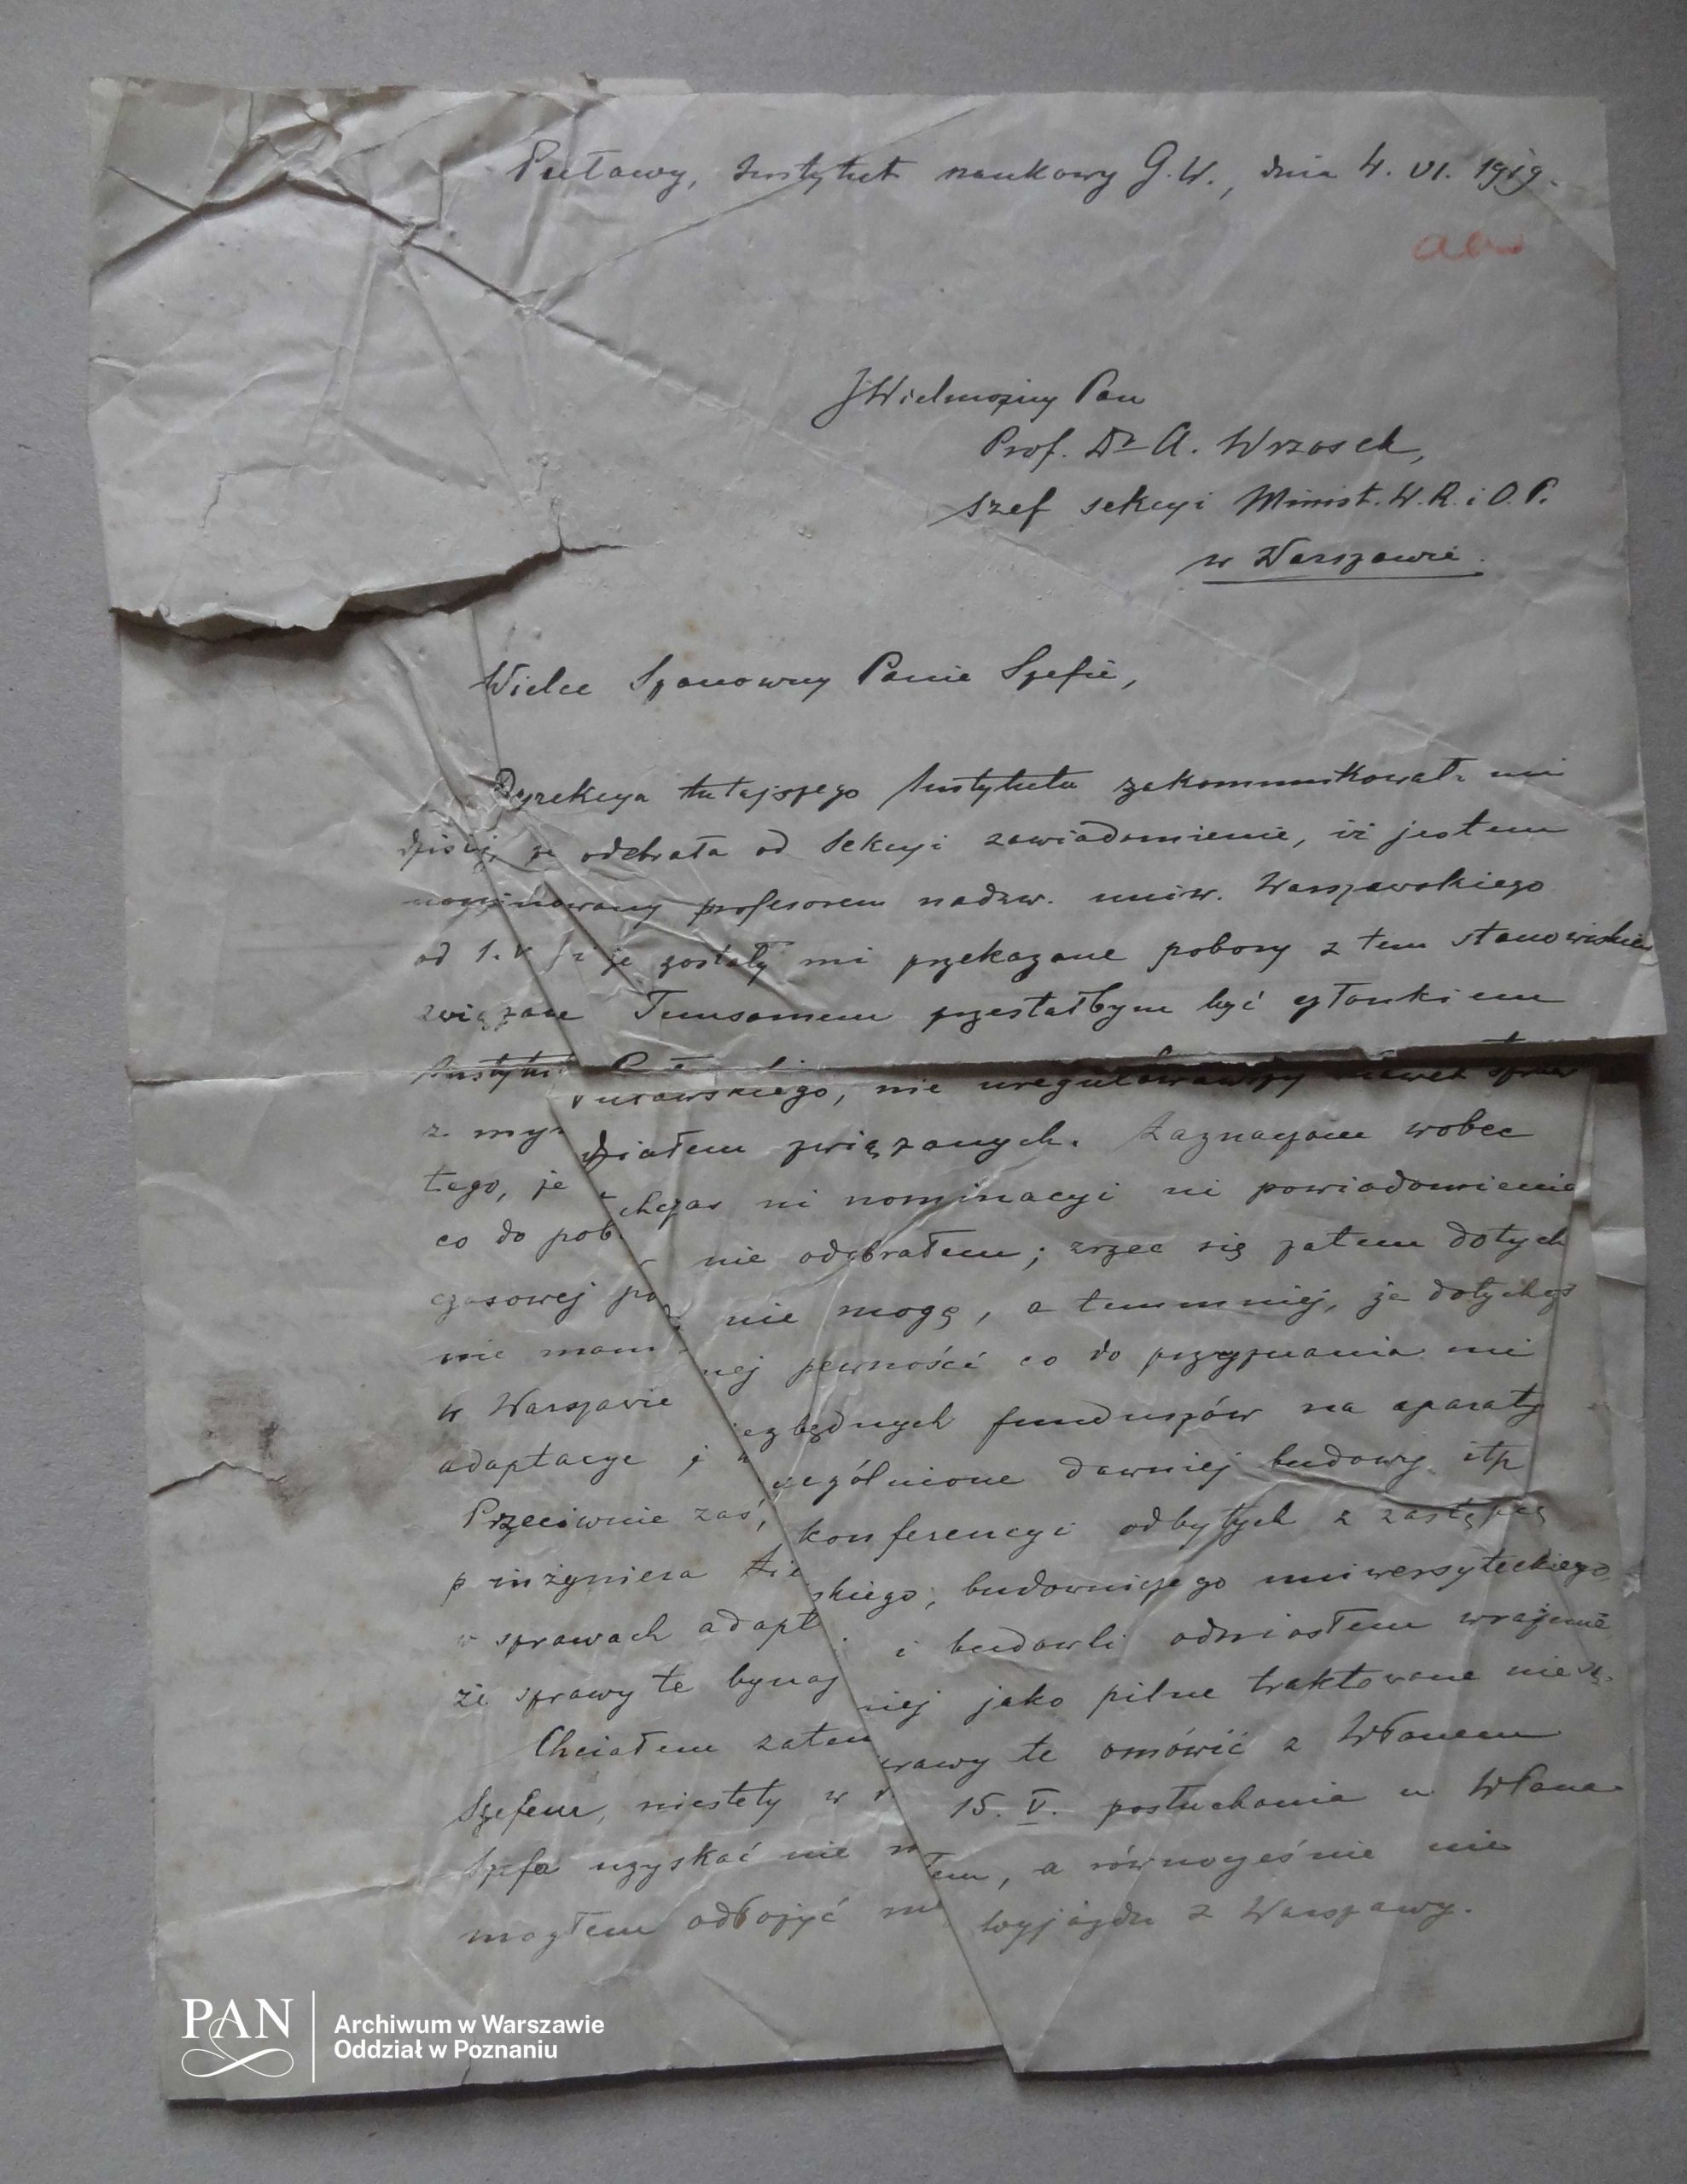 Puławy, Instytut naukowy G.W., dnia 4. VI. 1919.
JWielmożny Pan
Prof. Dr A. Wrzosek,
szef sekcyi Minist. W.R. i O.P.
w Warszawie.
Wielce Szanowny Panie Szefie,
Dyrekcya tutejszego Instytutu zakommunikowała mi
dzisiaj, że odebrała od Sekcyi zawiadomienie, iż jestem
nominowany profesorem nadzw. uniw. Warszawskiego
od 1. V i że zostały mi przekazane pobory z tem stanowiskiem
związane Temsamem przestałbym być członkiem
Instytu Puławskiego, nie uregulowawszy nawet spraw
z my działem związanych. Zaznaczam wobec
tego, że chczas ni nominacyi ni powiadomienia
co do pob nie odebrałem; zrzec się zatem dotych
czasowej po nie mogę, a temmniej, że dotychczs
nie mam nej pewności co do przyznania mi
w Warszawie ezbędnych funduszów na aparaty
adaptacye i ególnione dawniej budowy itp
Przeciwnie zaś, konferencyi odbytych z zastępcą
p inżyniera skiego, budowniczego uniwersyteckiego,
w sprawach adapt i budowli odniosłem wrażenie
że sprawy te bynaj niej jako pilne traktowane nie są.
Chciałem zatem rawy te omówić z WPanem
Szefem, niestety w 15. V. posłuchania u WPana
Szefa uzyskać nie m łem, a równocześnie nie
mogłem odłożyć m wyjazdu z Warszawy.
PAN
Archiwum w Warszawie
Oddział w Poznaniu